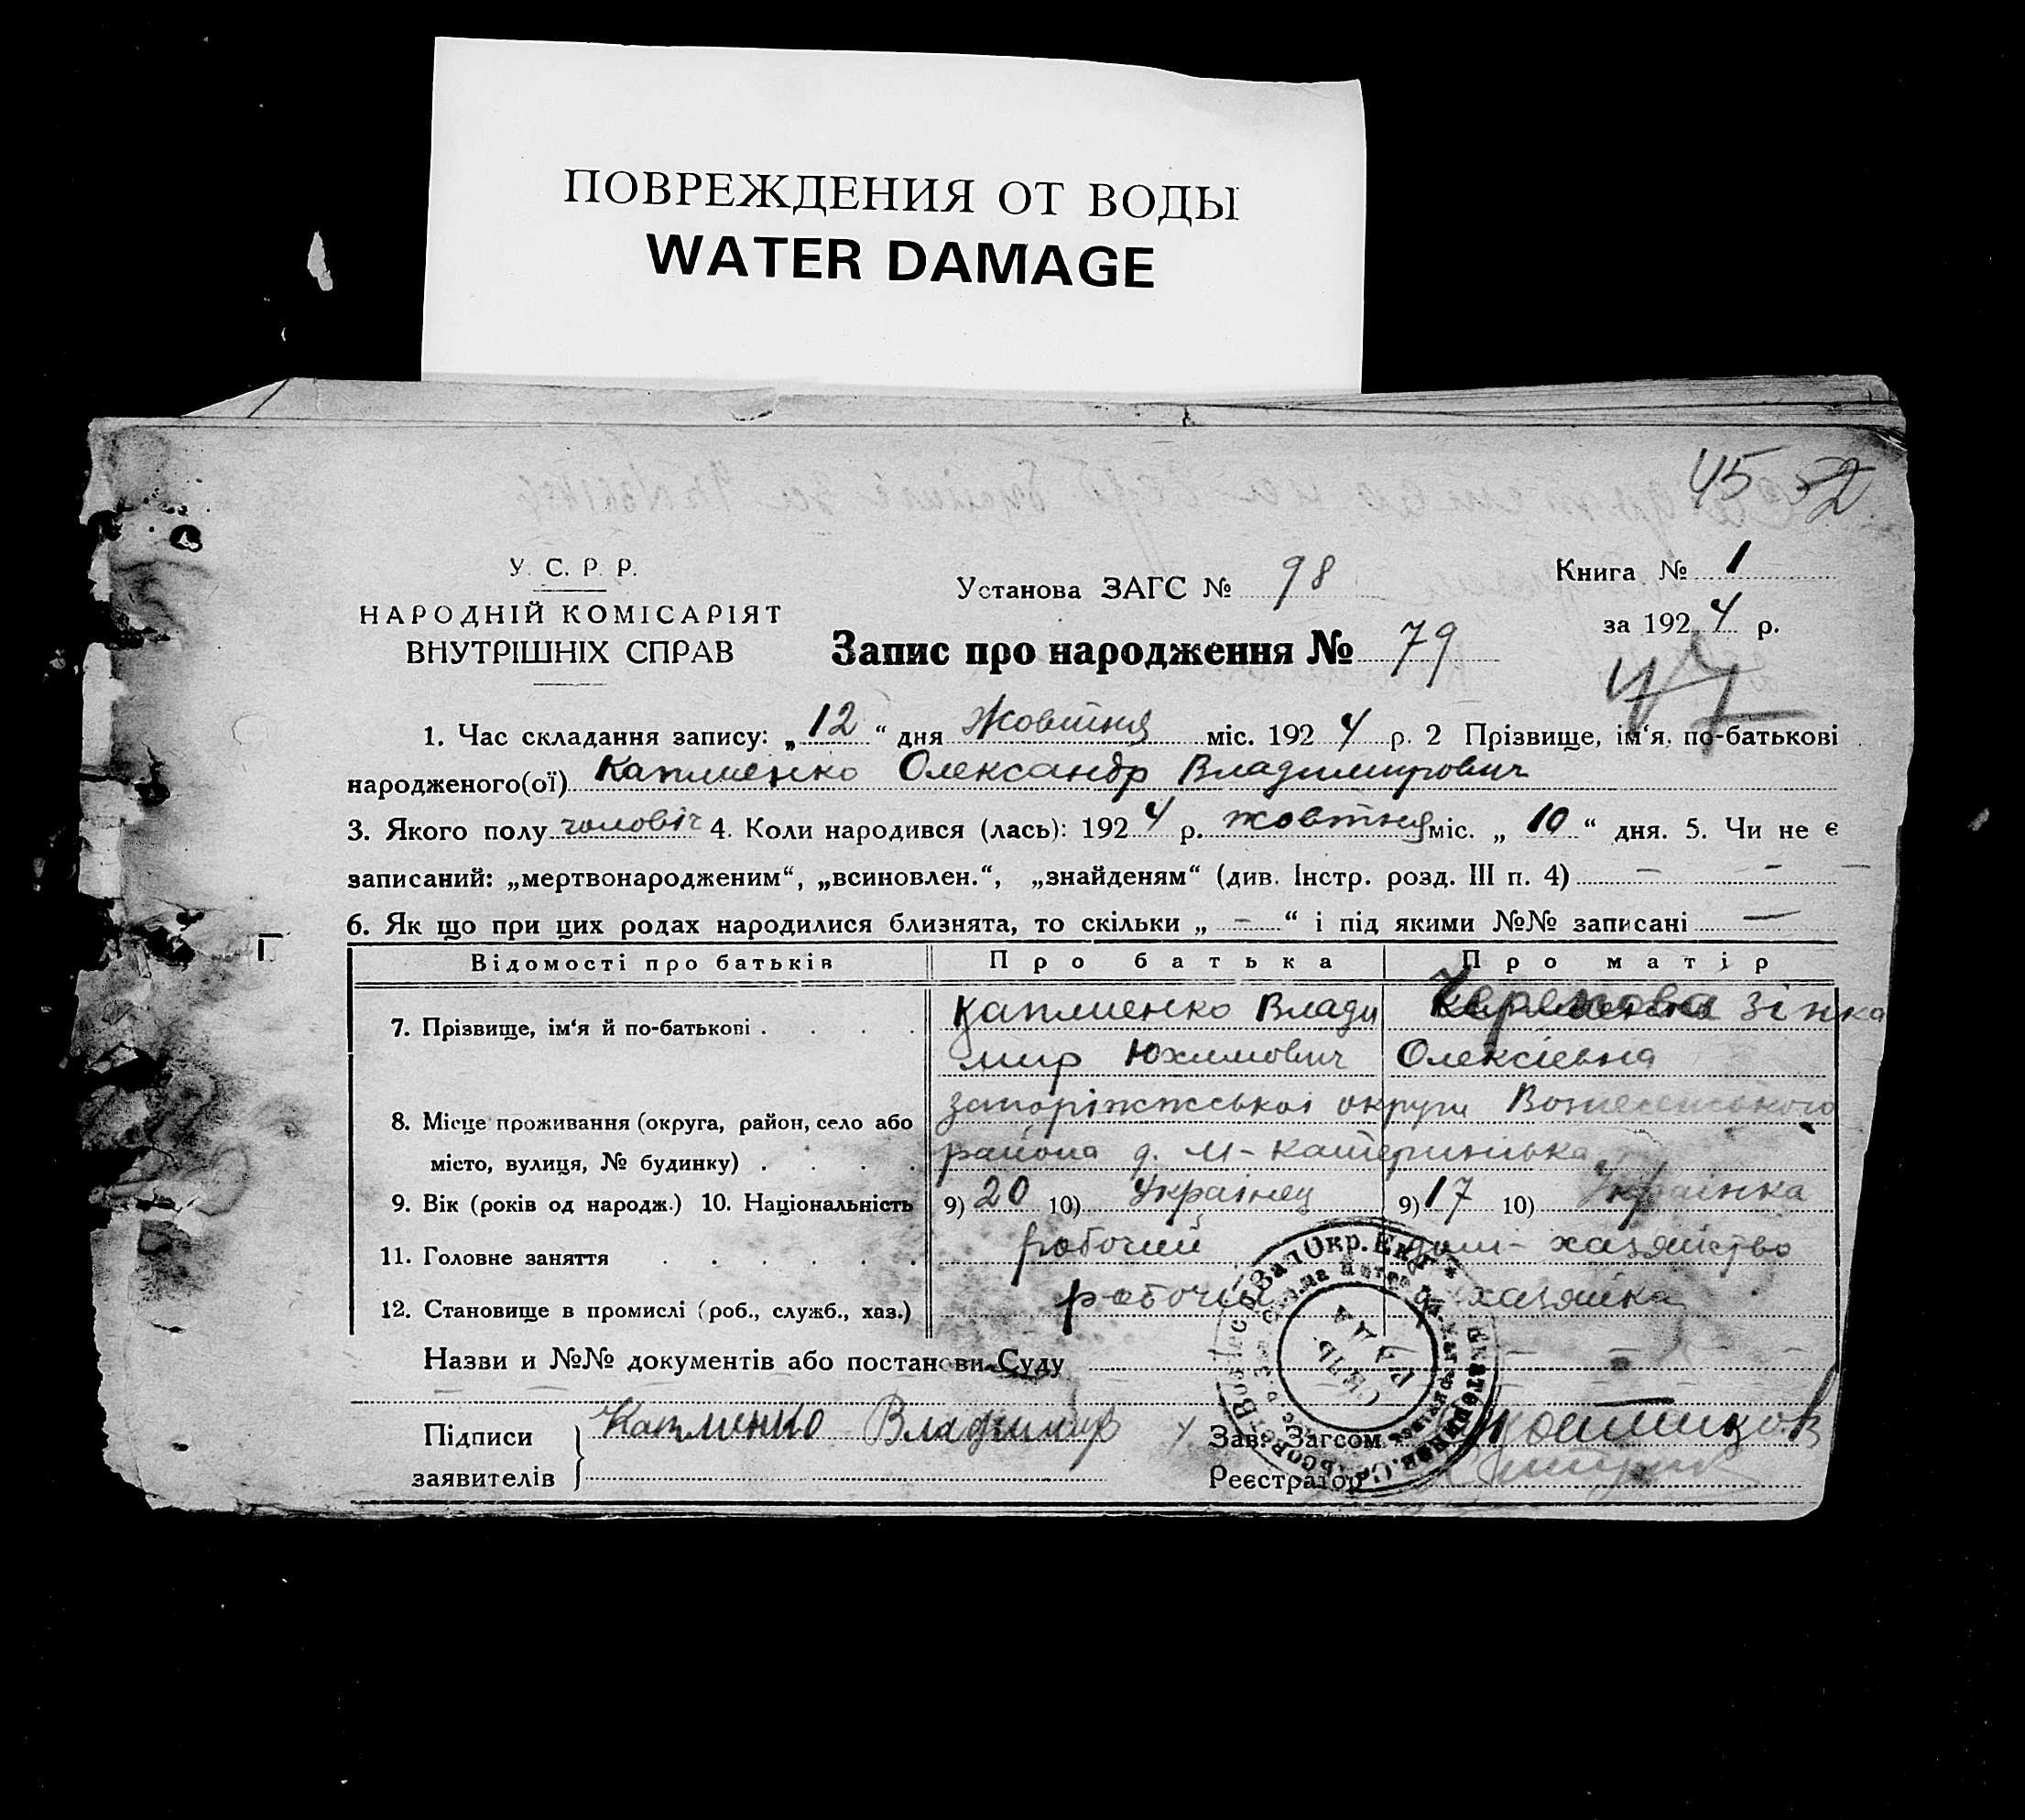 ПОВРЕЖДЕНИЯ ОТ ВОДЫ
WATER DAMAGE
45 52
У. С. Р. Р.
НАРОДНІЙ КОМІСАРІЯТ
ВНУТРІШНІХ СПРАВ
Установа ЗАГС № 98
Книга № 1
за 1924 р.
Запис про народження № 79
1. Час складання запису: „12“ дня Жовтня міс. 1924 р. 2 Прізвище, ім‘я, по-батькові
народженого(ої) Каплиенко Олександр Владимирович
3. Якого полу чоловіч 4. Коли народився (лась): 1924 р. жовтня міс. „10“ дня. 5. Чи не є
записаний: „мертвонародженим“, „всиновлен.“, „знайденям“ (див. Інстр. розд. III п. 4) — — —
6. Як що при цих родах народилися близнята, то скільки „ – “ і під якими №№ записані —
Відомості про батьків Про батька Про матір
7. Прізвище, ім‘я й по-батькові . . . . Каплиенко Влади Зінка
мир Юхимович Олексієвна
8. Місце проживання (округа, район, село або запоріжжської округи Вознесенського
місто, вулиця, № будинку) . . . . района д. М-Катеринівька
9. Вік (років од народж.) 10. Національність 9) 20 10) Українец 9) 17 10) Українка
11. Головне заняття . . . . . . робочий дом-хазяйство
12. Становище в промислі (роб., служб., хаз.) робочий хазяйка
Назви и №№ документів або постанови Суду
Підписи Каплиенко Владимир Зав. Загсом
заявителів Реєстратор
СЕЛЬ
РАДА